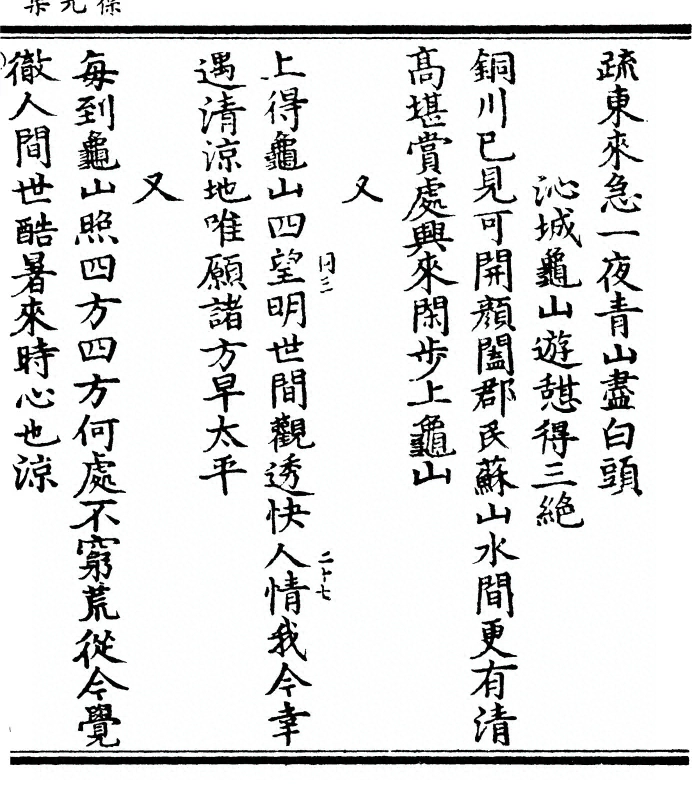 疏東來急一夜青山盡白頭
沁城龜山遊憇得三絕
銅川已見可開顏闔郡民蘇山水間更有清
高堪賞處興來閑步上龜山
又
上得龜山四望明世間觀透快人情我今幸
遇清涼地唯願諸方早太平
又
每到龜山照四方四方何處不窮荒從今覺
徹人間世酷暑來時心也涼